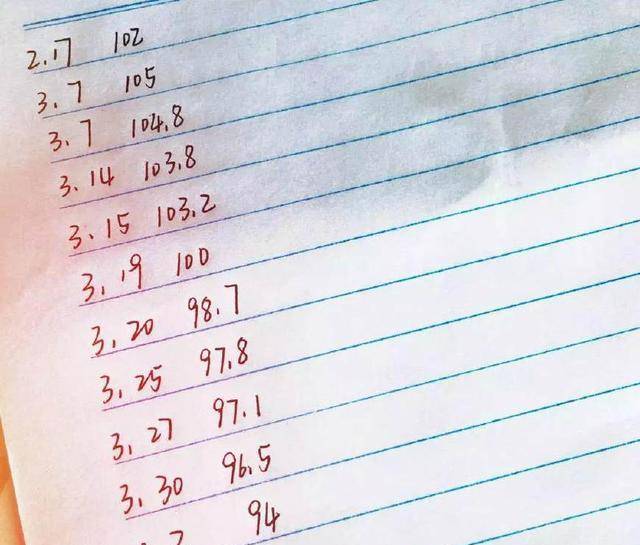 2.17 102
3.7 105
3.7 104.8
3.14 103.8
3.15 103.2
3.19 100
3.20 98.7
3.25 97.8
3.27 97.1
3.30 96.5
94